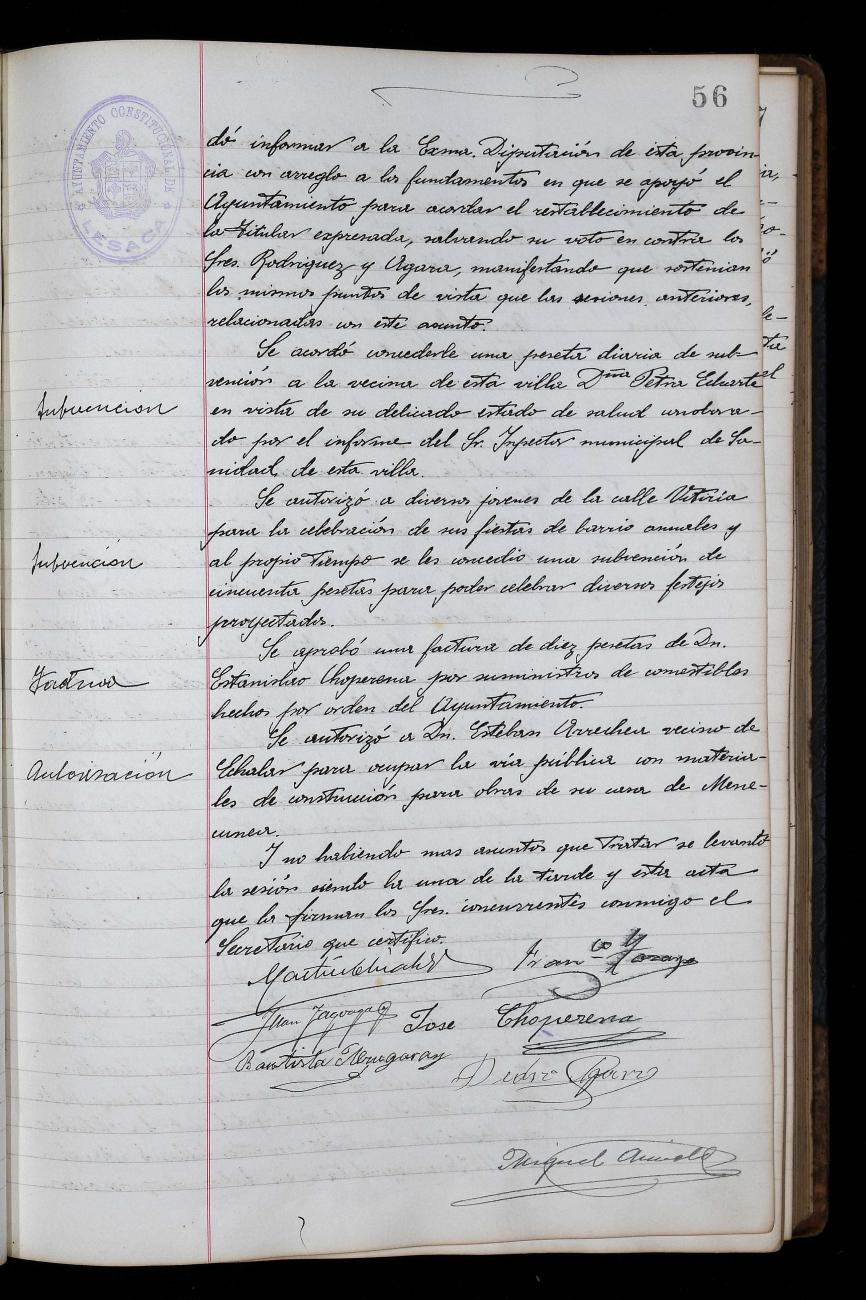 56
AYUNTAMIENTO CONSTITUCIONAL DE
LESACA
dó informar a la Exma. Diputación de esta provin
cia con arreglo a los fundamentos en que se apoyó el
Ayuntamiento para acordar el restablecimiento de
la titular expresada, salvando su voto en contra los
Sres. Rodriguez y Agara, manifestando que sostenian
los mismos puntos de vista que las sesiones anteriores,
relacionadas con este asunto.
Se acordó concederle una peseta diaria de sub-
Subvención
vención a la vecina de esta villa Dña Petra Echarte
en vista de su delicado estado de salud corrobora-
do por el informe del Sr. Inspector municipal de Sa-
nidad de esta villa.
Se autorizó a diversos jovenes de la calle Vitiria
para la celebración de sus fiestas de barrio anuales y
Subvención
al propio tiempo se les concedio una subvención de
cincuenta pesetas para poder celebrar diversos festejos
proyectados.
Se aprobó una factura de diez pesetas de Dn.
Factura
Estanislao Choperena por suministros de comestibles
hechos por orden del Ayuntamiento.
Se autorizó a Dn. Estéban Arrechea vecino de
Autorización
Echalar para ocupar la via pública con materia-
les de construcción para obras de su casa de Mene-
cunea.
Y no habiendo mas asuntos que tratar se levantó
la sesión siendo la una de la tarde y esta acta
que la firman los Sres. concurrentes conmigo el
Secretario que certifico.
Franco
Juan
José Choperena
Bautista
Pedro
Miguel